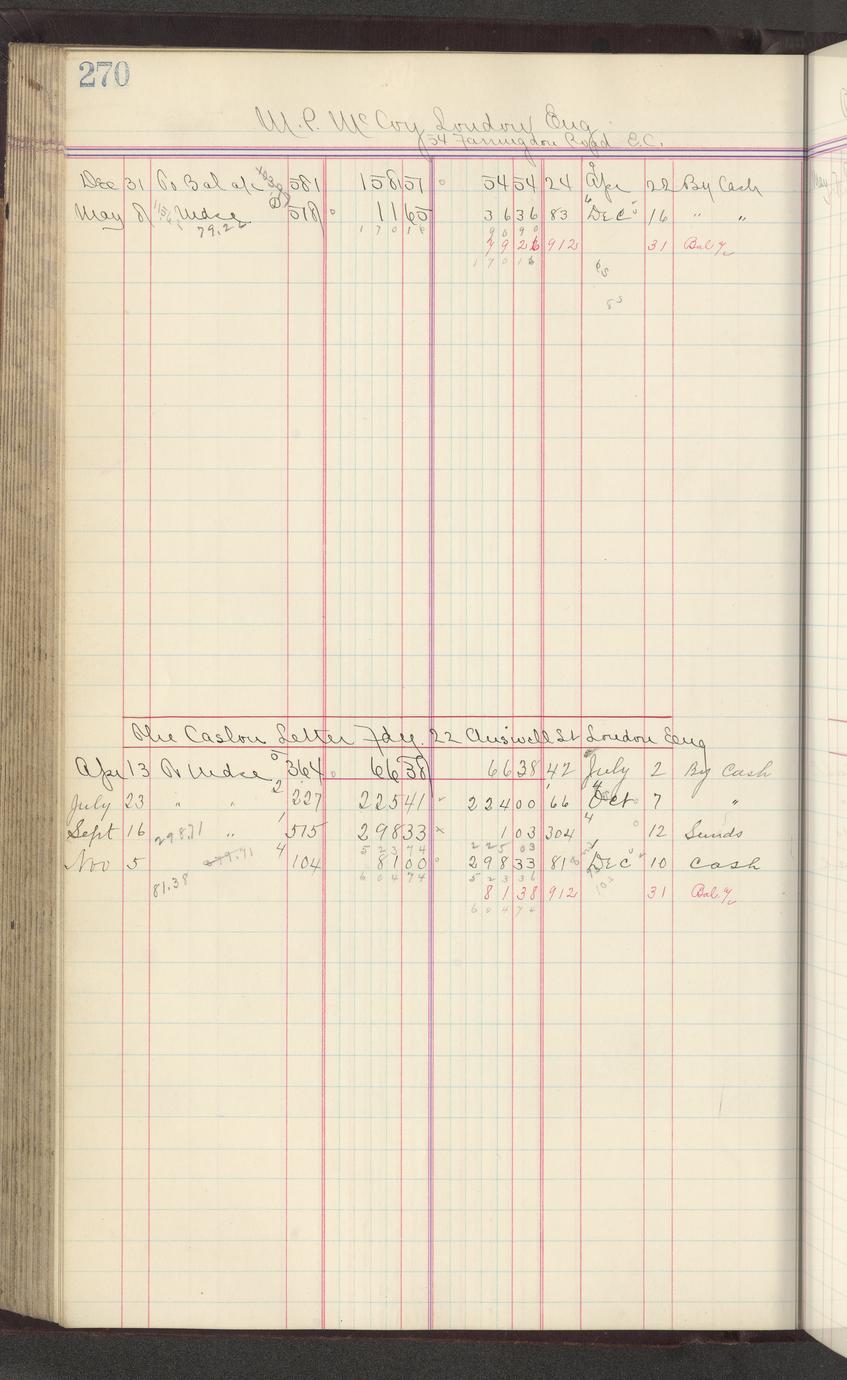 270
M. P. McCoy London Eng
54 Farringdon Road E.C.
Dec 31 To Bal a/c 581 158 51 54 54 24 Apr 22 By Cash
May 8 Mdse 518 11 65 36 36 83 Dec 16 " "
79.26 170 16 90 90
79 26 912 31 Bal.
170 16
The Caslon Letter Fdy. 22 Chiswell St London Eng
Apr 13 To Mdse 364 66 38 66 38 42 July 2 By Cash
July 23 " " 227 225 41 224 00 66 Oct 7 "
Sept 16 298.71 " 515 298 33 1 03 304 12 Sunds
523 74 225 03
Nov 5 104 81 00 298 33 81 Dec 10 Cash
604 74 523 36
81.38 81 38 912 31 Bal.
604 74